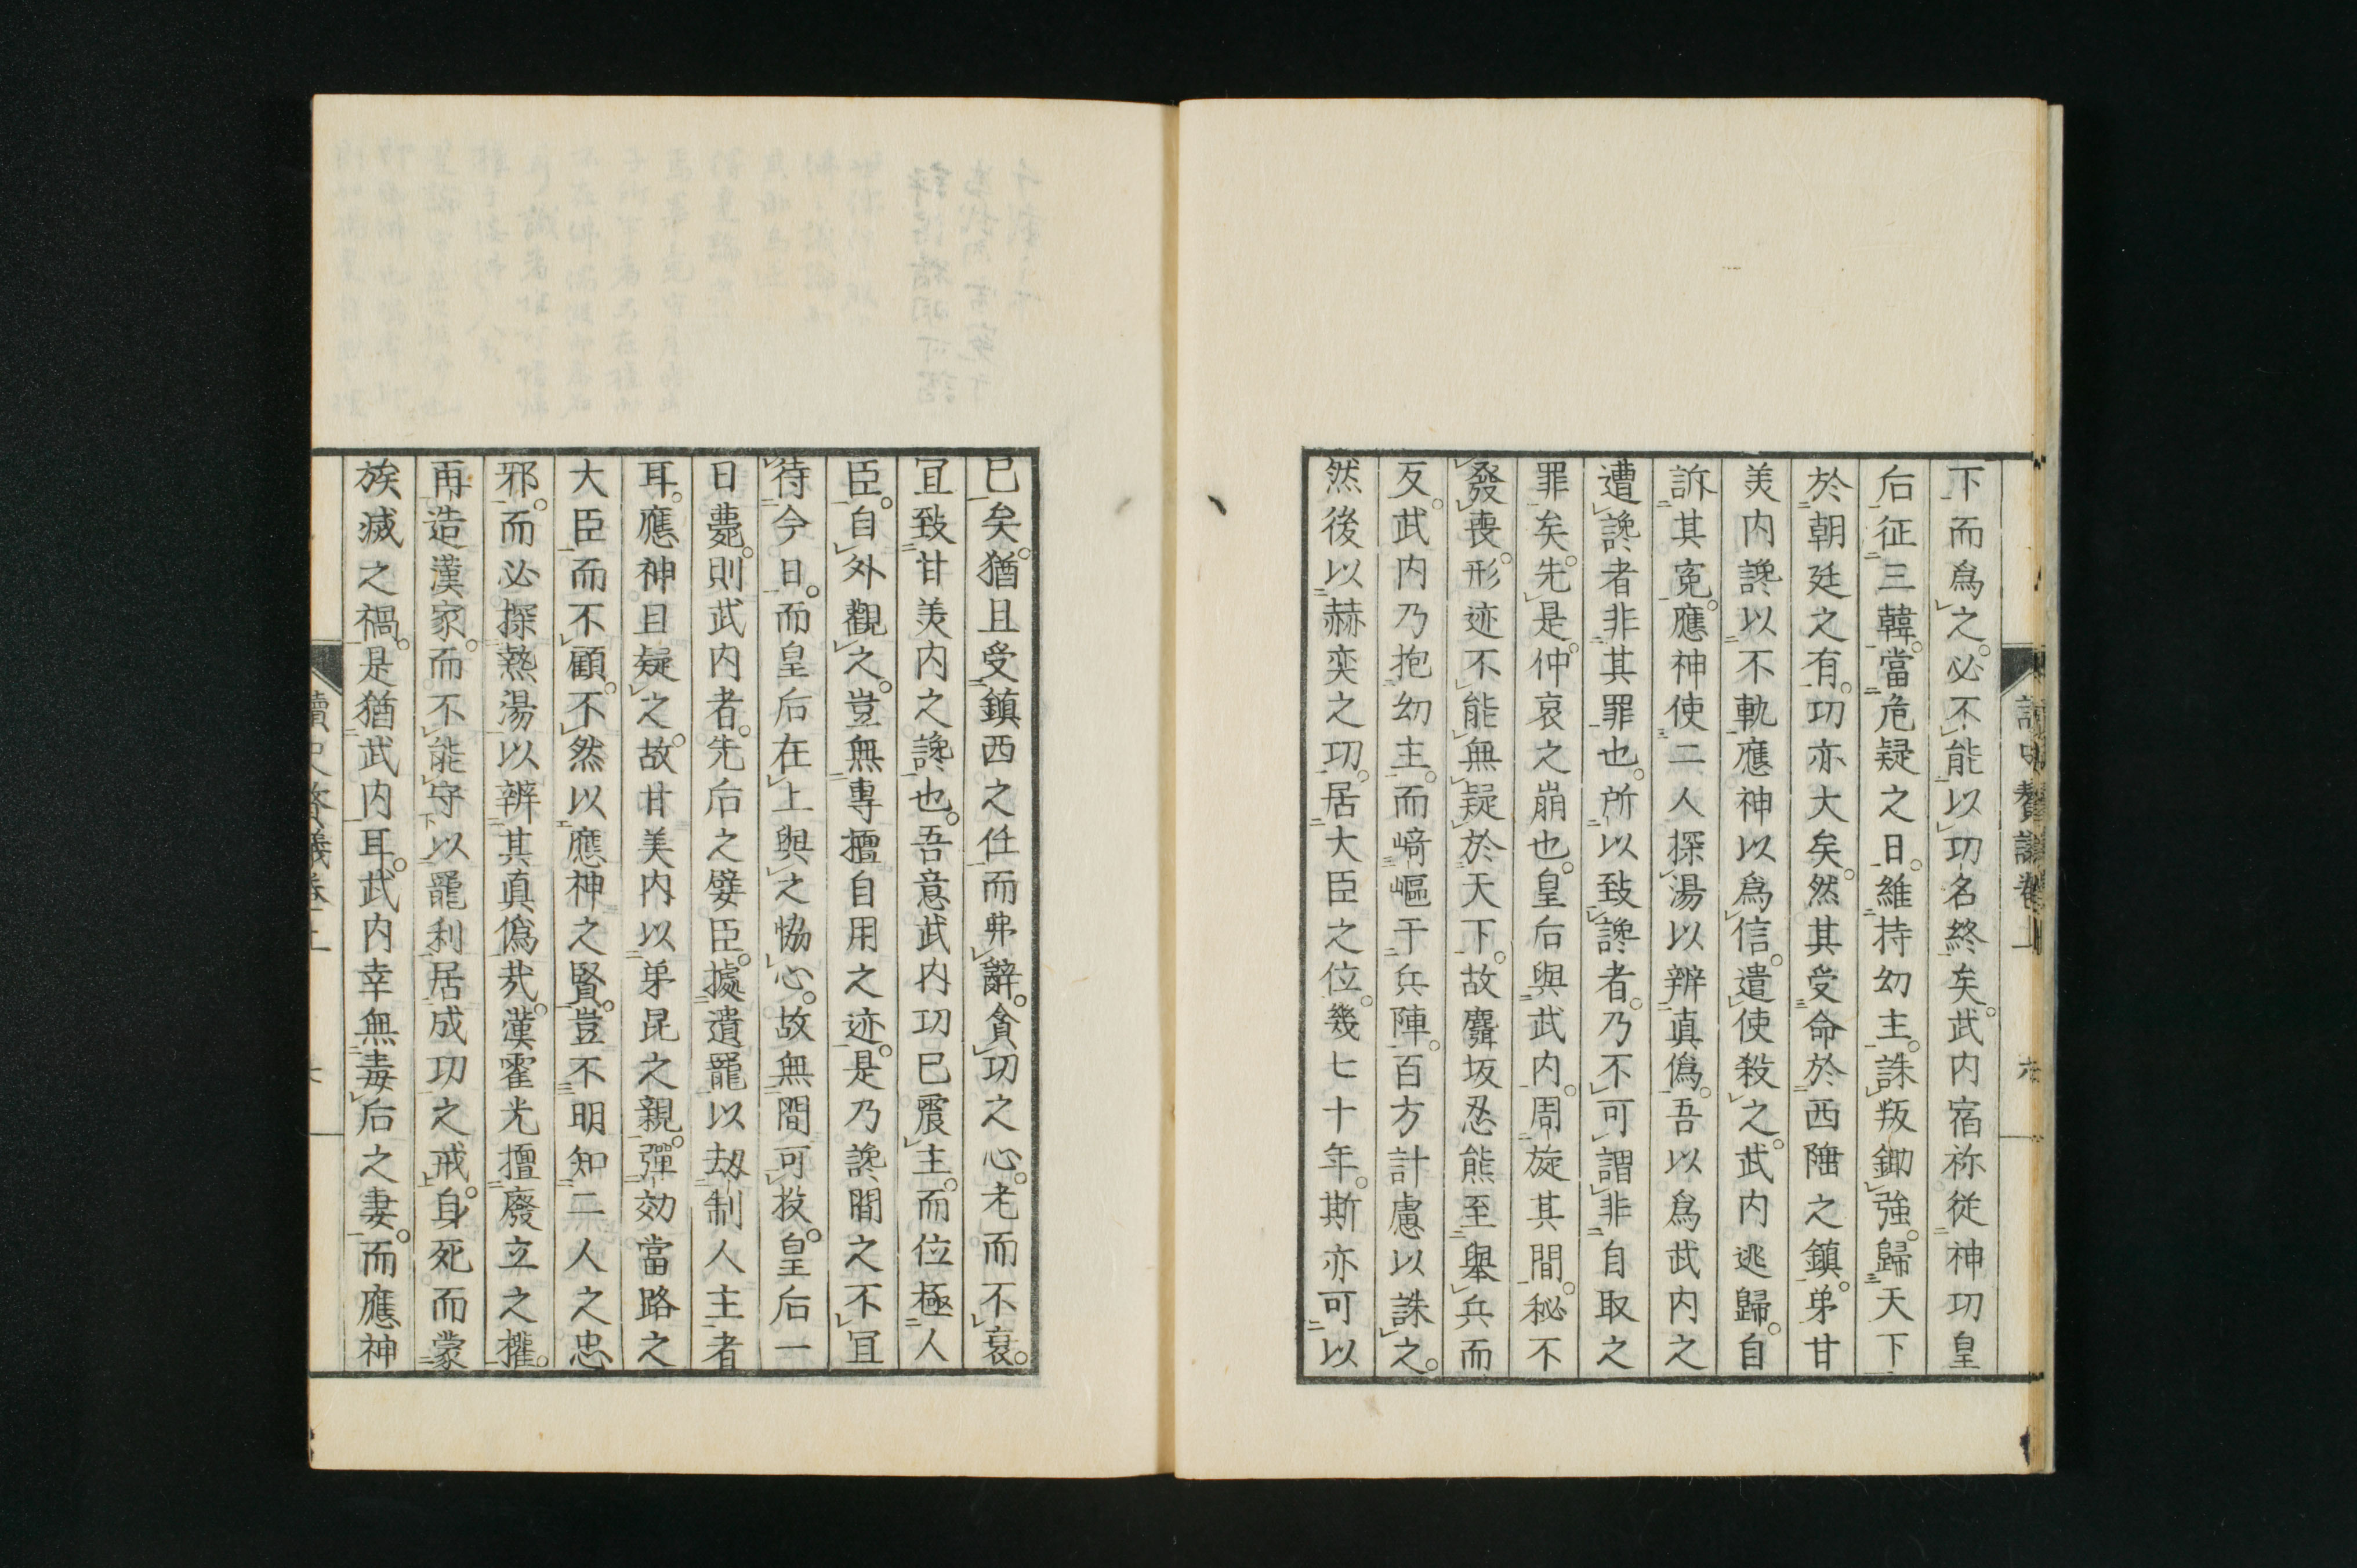 下而爲之。必不能以功名終矣。武内宿祢從神功皇
后征三韓。當危疑之日。維持幼主。誅叛鋤強。歸天下
於朝廷之有。功亦大矣。然其受命於西陲之鎮。弟甘
美内讒以不軌。應神以爲信。遣使殺之。武内逃歸。自
訴其寃。應神使二人探湯以辨真僞。吾以爲武内之
遭讒者非其罪也。所以致讒者。乃不可謂非自取之
罪矣。先是。仲哀之崩也。皇后與武内。周旋其間。秘不
發喪。形迹不能無疑於天下。故麛坂忍熊至舉兵而
反。武内乃抱幼主。而﨑嶇于兵陣。百方計慮以誅之。
然後以赫奕之功。居大臣之位。幾七十年。斯亦可以
已矣。猶且受鎮西之任。而弗辭。貪功之心。老而不衰。
宜致甘美内之讒也。吾意武内功已震主。而位極人
臣。自外觀之。豈無專擅自用之迹。是乃讒間之不宜
待今日。而皇后在上與之恊心。故無間可投。皇后一
日薨。則武内者。先后之嬖臣。據遺寵以刼制人主者
耳。應神且疑之。故甘美内以弟昆之親。彈効當路之
大臣而不顧。不然以應神之賢。豈不明知二人之忠
邪。而必探熱湯以辨其真僞㢤。漢霍光擅廢立之權。
再造漢家。而不能守以寵利居成功之戒。身死而蒙
族滅之禍。是猶武内耳。武内幸無毒后之妻。而應神
讀史贅議卷上
六